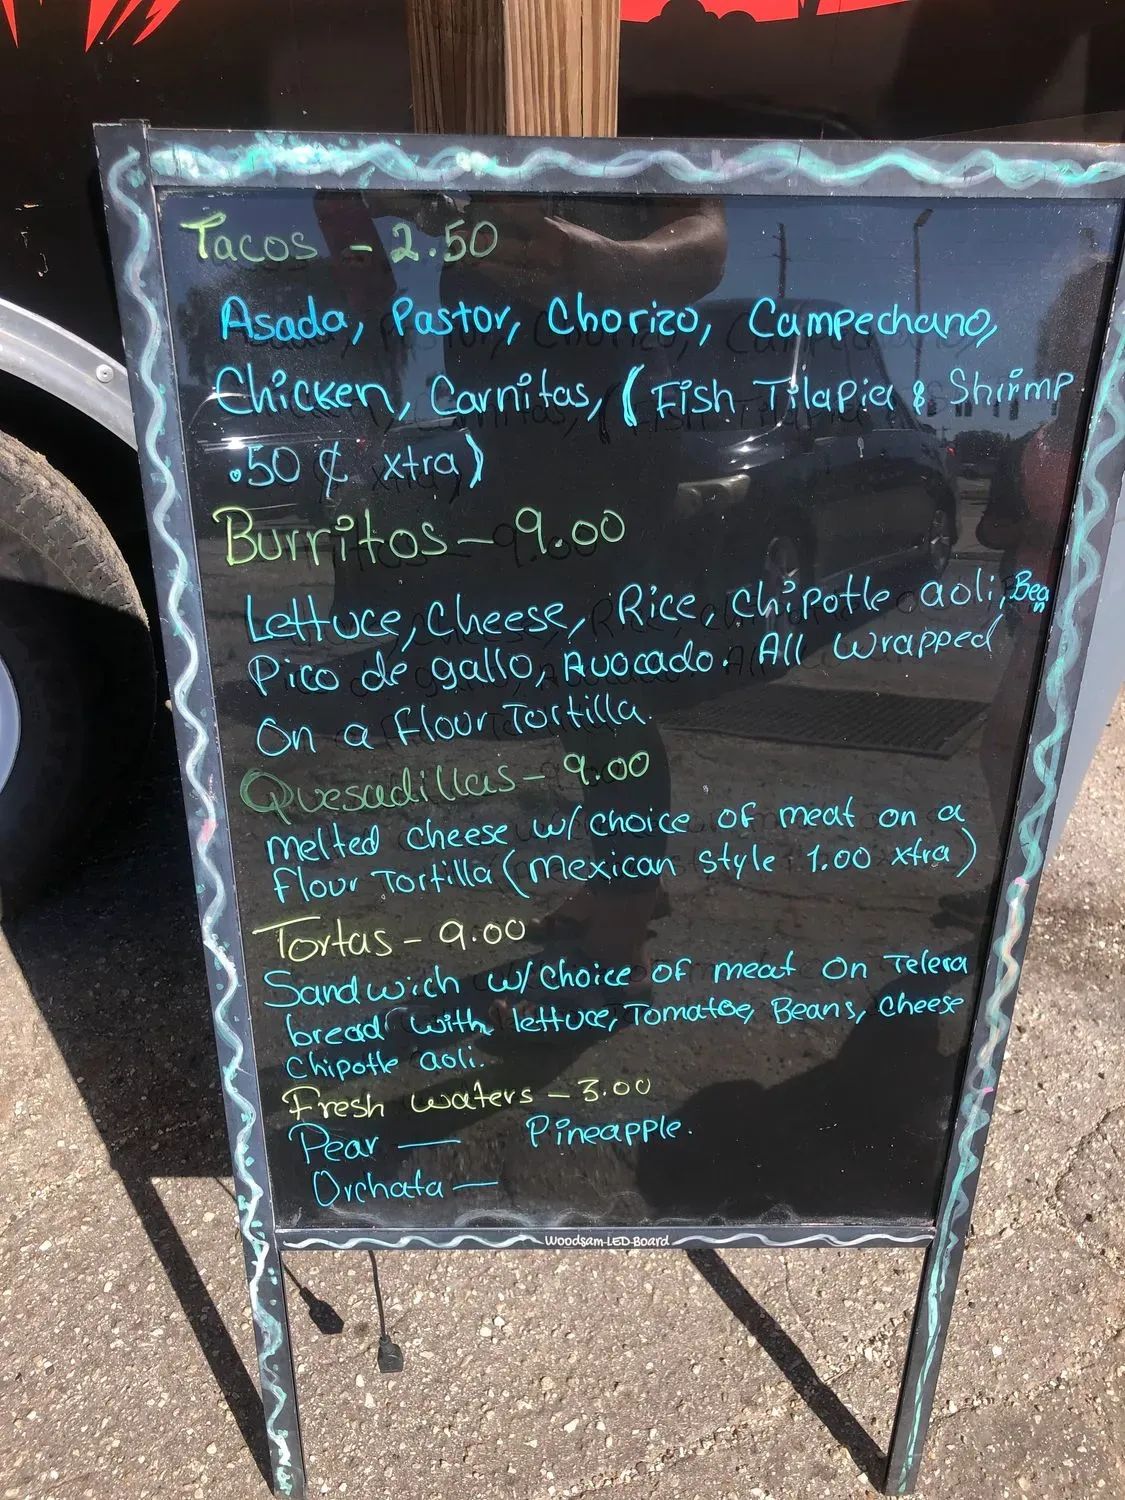 Tacos - 2.50
Asada, Pastor, Chorizo, Campechano,
Chicken, Carnitas, (Fish Tilapia & Shrimp
.50 ¢ xtra)
Burritos - 9.00
Lettuce, Cheese, Rice, Chipotle aoli, Bean
Pico de gallo, Avocado. All wrapped
On a flour Tortilla.
Quesadillas - 9.00
Melted cheese w/ choice of meat on a
flour Tortilla (Mexican style 1.00 xtra)
Tortas - 9.00
Sandwich w/ choice of meat on Telera
bread with lettuce, Tomatoe, Beans, cheese
Chipotle aoli.
Fresh waters - 3.00
Pear — Pineapple.
Orchata —
Woodsam LED Board